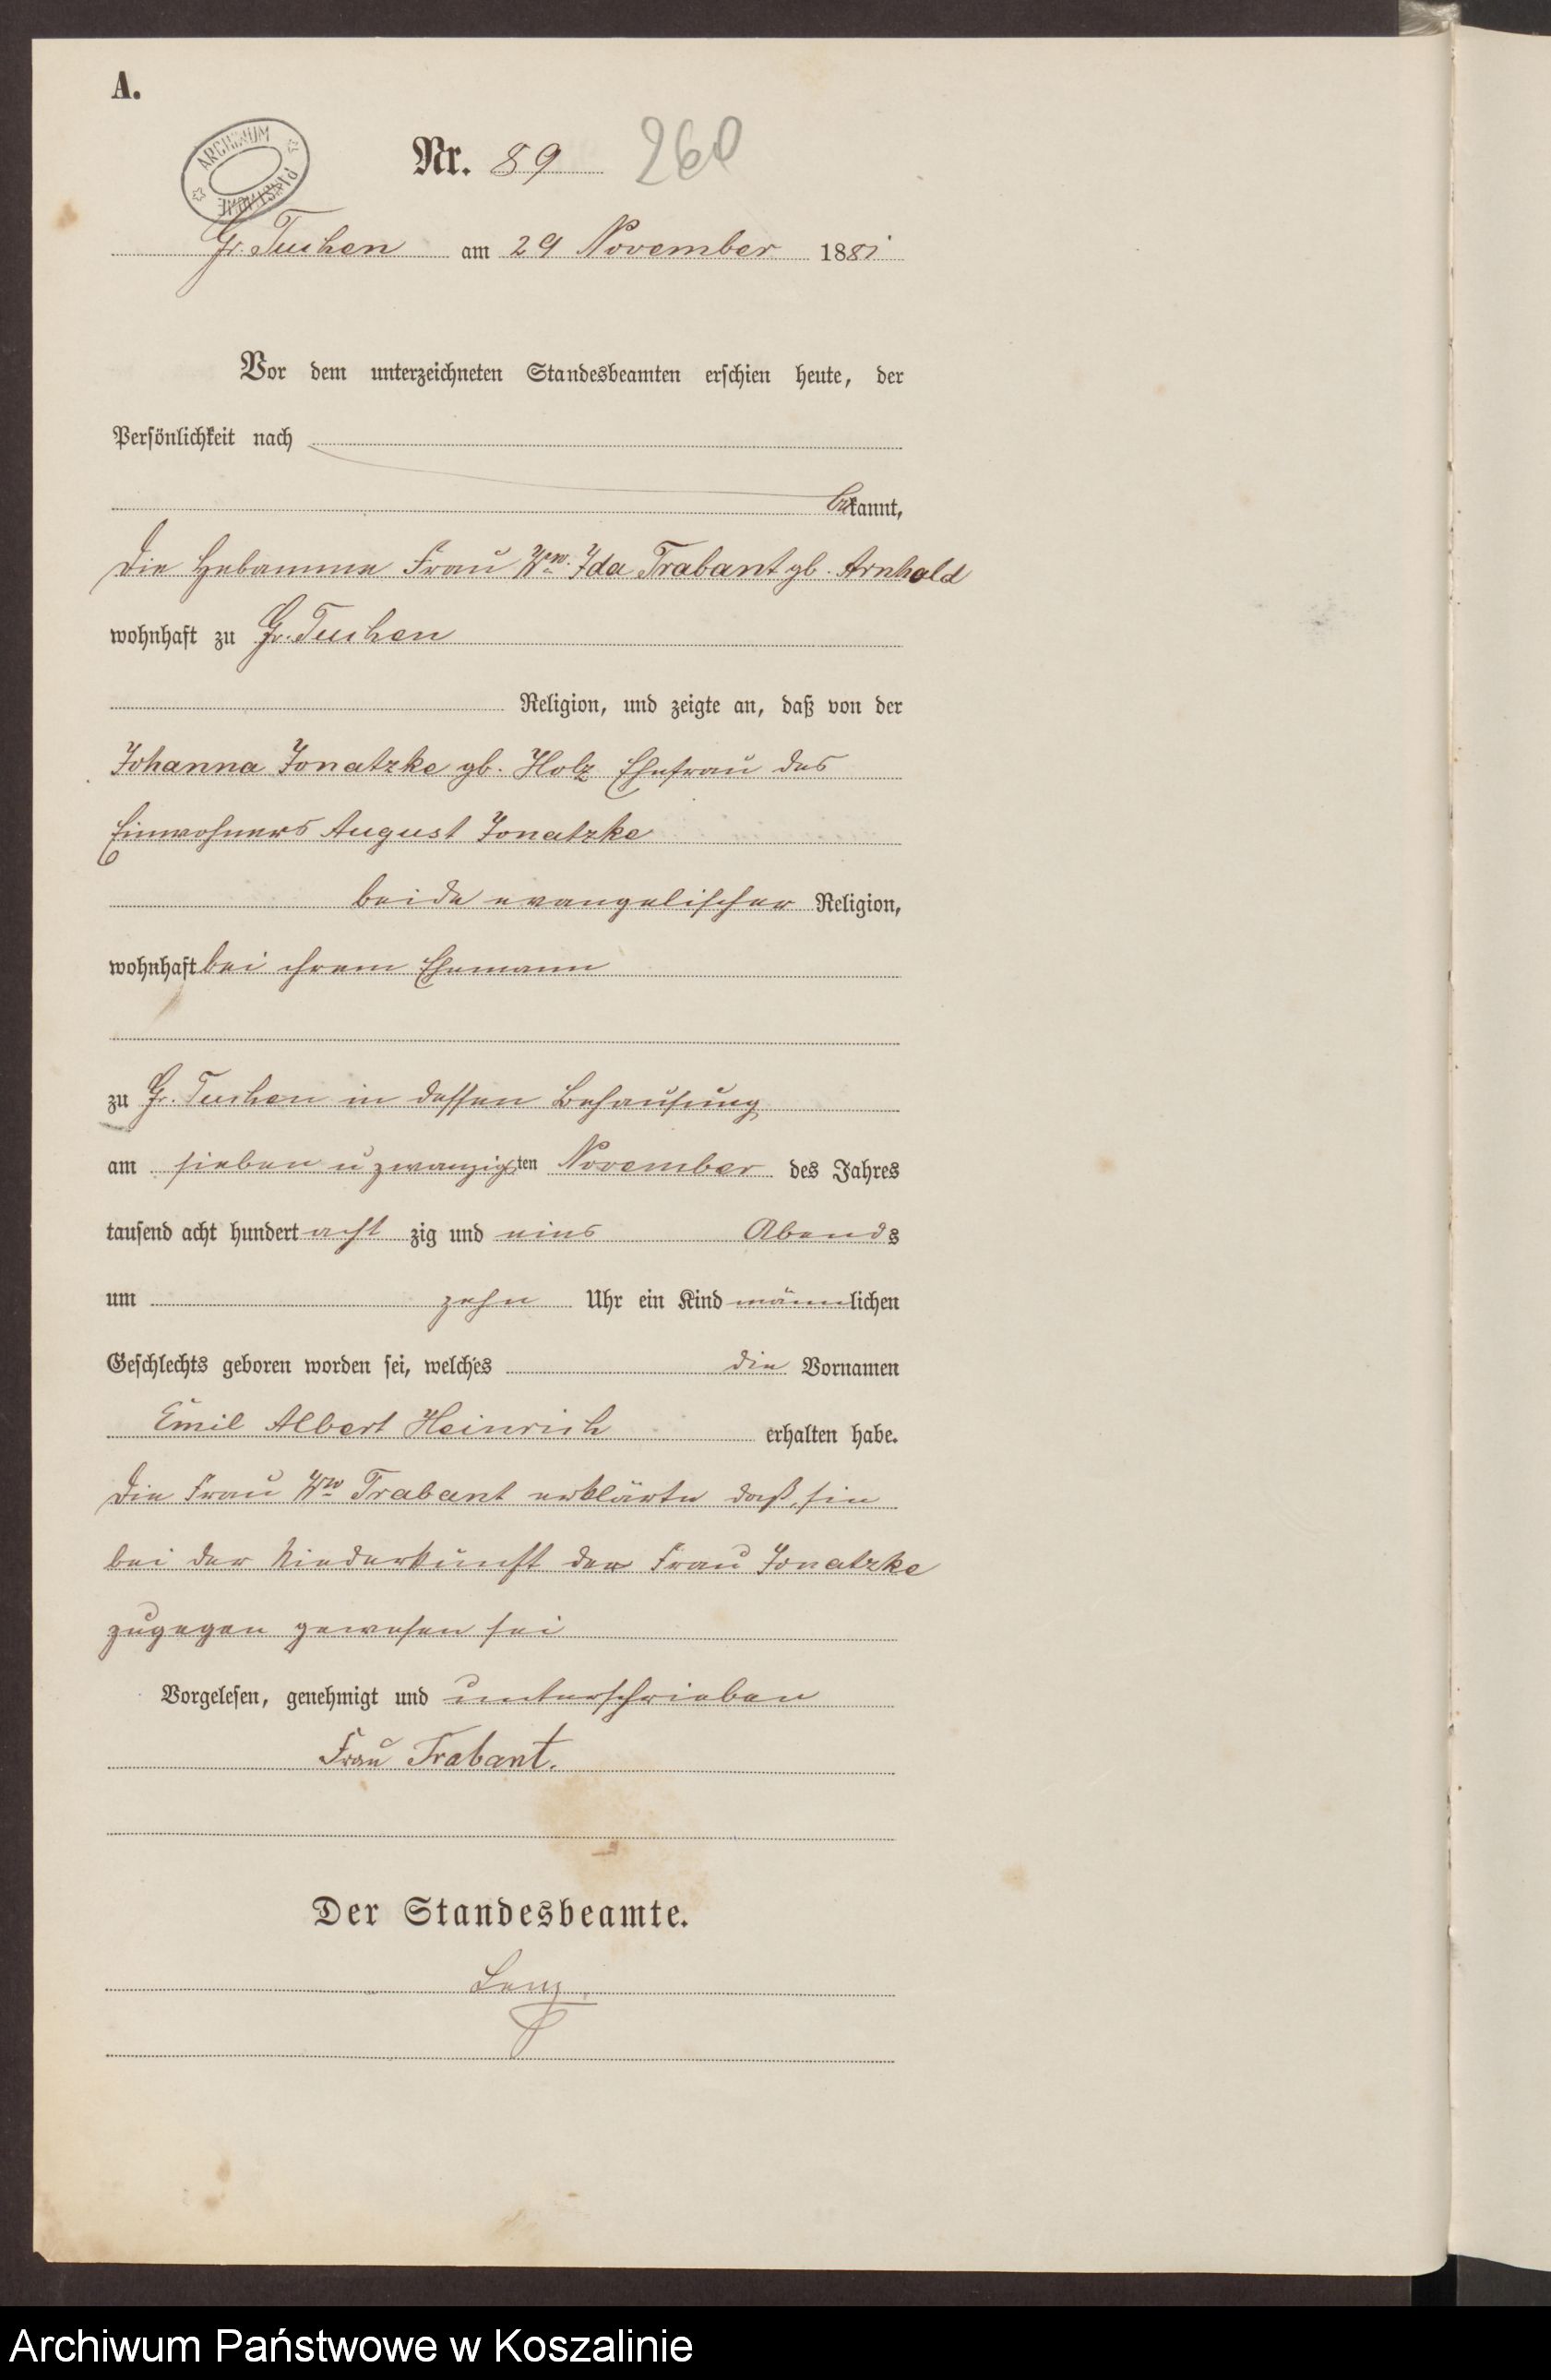 A.
ARCHIWUM PAŃSTWOWE
Nr. 89 260
Gr. Tuchen am 29 November 1881
Vor dem unterzeichneten Standesbeamten erschien heute, der
Persönlichkeit nach
bekannt,
die Hebamme Frau Ww. Ida Trabant gb. Arnhold
wohnhaft zu Gr. Tuchen
Religion, und zeigte an, daß von der
Johanna Jonatzke gb. Holz Ehefrau des
Einwohners August Jonatzke
beide evangelischer Religion,
wohnhaft bei ihrem Ehemann
zu Gr. Tuchen in dessen Behausung
am sieben u zwanzigsten November des Jahres
tausend acht hundert acht zig und eins Abends
um zehn Uhr ein Kind männlichen
Geschlechts geboren worden sei, welches die Vornamen
Emil Albert Heinrich erhalten habe.
Die Frau Ww Trabant erklärte daß sie
bei der Niederkunft der Frau Jonatzke
zugegen gewesen sei
Vorgelesen, genehmigt und unterschrieben
Frau Trabant.
Der Standesbeamte.
Lenz
Archiwum Państwowe w Koszalinie